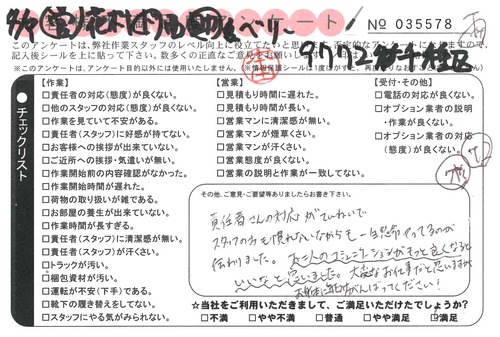 アンケート
№ 035578
このアンケートは、弊社作業スタッフのレベル向上に役立てたいと思
記入後シールを上に貼って下さい。数多くの正直なご意見をお願いします
※このアンケートは、アンケート目的以外には使用いたしません。
チェックリスト
【作業】
□責任者(の対応)(態度)が良くない。
□他のスタッフの対応(態度)が良くない。
□作業を見ていて不安がある。
□責任者(スタッフ)に好感が持てない。
□お客様への挨拶が出来ていない。
□ご近所への挨拶・気遣いが無い。
□作業開始前の内容確認がなかった。
□作業開始時間が遅れた。
□荷物の取り扱いが雑である。
□お部屋の養生が出来ていない。
□作業時間が長すぎる。
□責任者(スタッフ)に清潔感が無い。
□責任者(スタッフ)が汗くさい。
□トラックが汚い。
□梱包資材が汚い。
□運転が不安(下手)である。
□靴下の履き替えをしてない。
□スタッフにやる気がみられない。
【営業】
□見積もり時間に遅れた。
□見積もり時間が長い。
□営業マンに清潔感が無い。
□営業マンが煙草くさい。
□営業マンが汗くさい。
□営業態度が良くない。
□営業の説明と作業が一致してない。
【受付・その他】
□電話の対応が良くない。
□オプション業者の説明
・作業が良くない。
□オプション業者の対応
(態度)が良くない。
その他、ご意見・ご要望等ありましたらお書き下さい。
責任者さんの対応がていねいで
スタッフの方も慣れないながらも一生懸命やってるのが
伝わりました。お二人のコミュニケーションがもっと良くなると
いいなと思いました。大変なお仕事だと思いますが
がんばってください!
☆当社をご利用いただきまして、ご満足いただけたでしょうか?
□不満 □やや不満 □普通 □やや満足 ☑満足